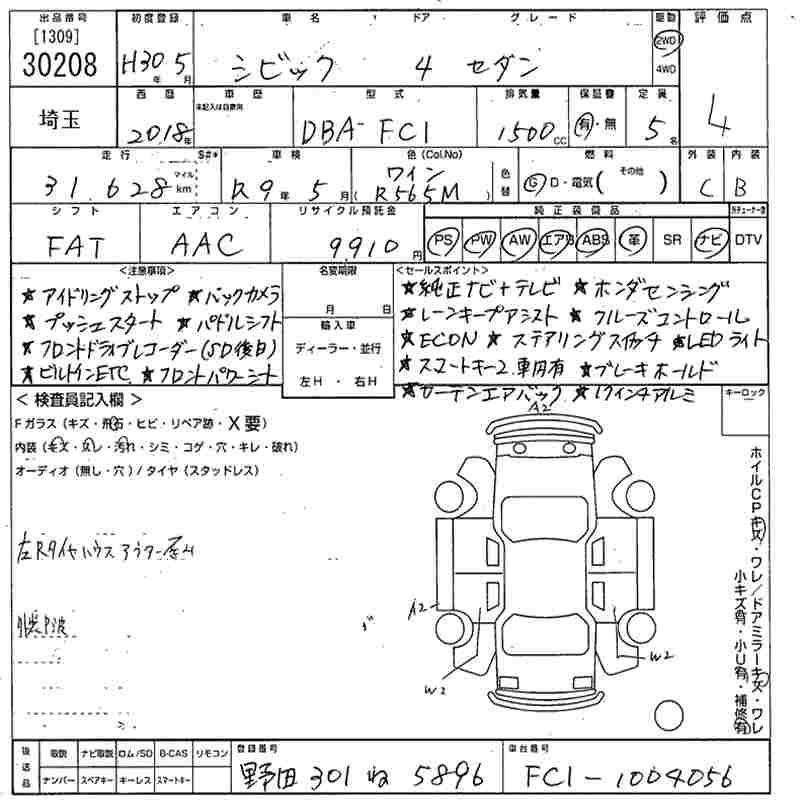 出品番号 初度登録 車名 ドア グレード 駆動 評価点
[1309]
30208 H30年 5月 シビック 4 セダン 2WD 4WD 4
埼玉 西暦 車歴 型式 排気量 保証書 定員
未記入は自家用
2018年 DBA-FC1 1500cc 有・無 5名
走行 S#* 車検 色(Col.No) 燃料 外装 内装
31,628 マイル km R9年 5月 ワイン R565M 色替 G D・電気( その他 ) C B
シフト エアコン リサイクル預託金 純正装備品
FAT AAC 9910円 PS PW AW エアB ABS 革 SR ナビ DTV
<注意事項>
★アイドリングストップ ★バックカメラ
★プッシュスタート ★パドルシフト
★フロントドライブレコーダー(SD後日)
★ビルトインETC ★フロントパワーシート
名変期限
月 日
輸入車
ディーラー・並行
左H・右H
<セールスポイント>
★純正ナビ+テレビ ★ホンダセンシング
★レーンキープアシスト ★クルーズコントロール
★ECON ★ステアリングスイッチ ★LEDライト
★スマートキー2 車内有 ★ブレーキホールド
★カーテンエアバック ★17インチアルミ
キーロック
<検査員記入欄>
Fガラス(キズ・飛石・ヒビ・リペア跡・X要)
内装(キズ・スレ・汚れ・シミ・コゲ・穴・キレ・破れ)
オーディオ(無し・穴)/タイヤ(スタッドレス)
左Rタイヤハウスアウター歪ミ
外装P波
A2
A2
W2
W2
ホイルCPキズ・ワレ/ドアミラーキズ・ワレ
小キズ有・小U有・補修有
後送品 取説 ナビ取説 ロム/SD B-CAS リモコン
ナンバー スペアキー キーレス スマートキー
登録番号
野田 301 ね 5896
車台番号
FC1-1004056